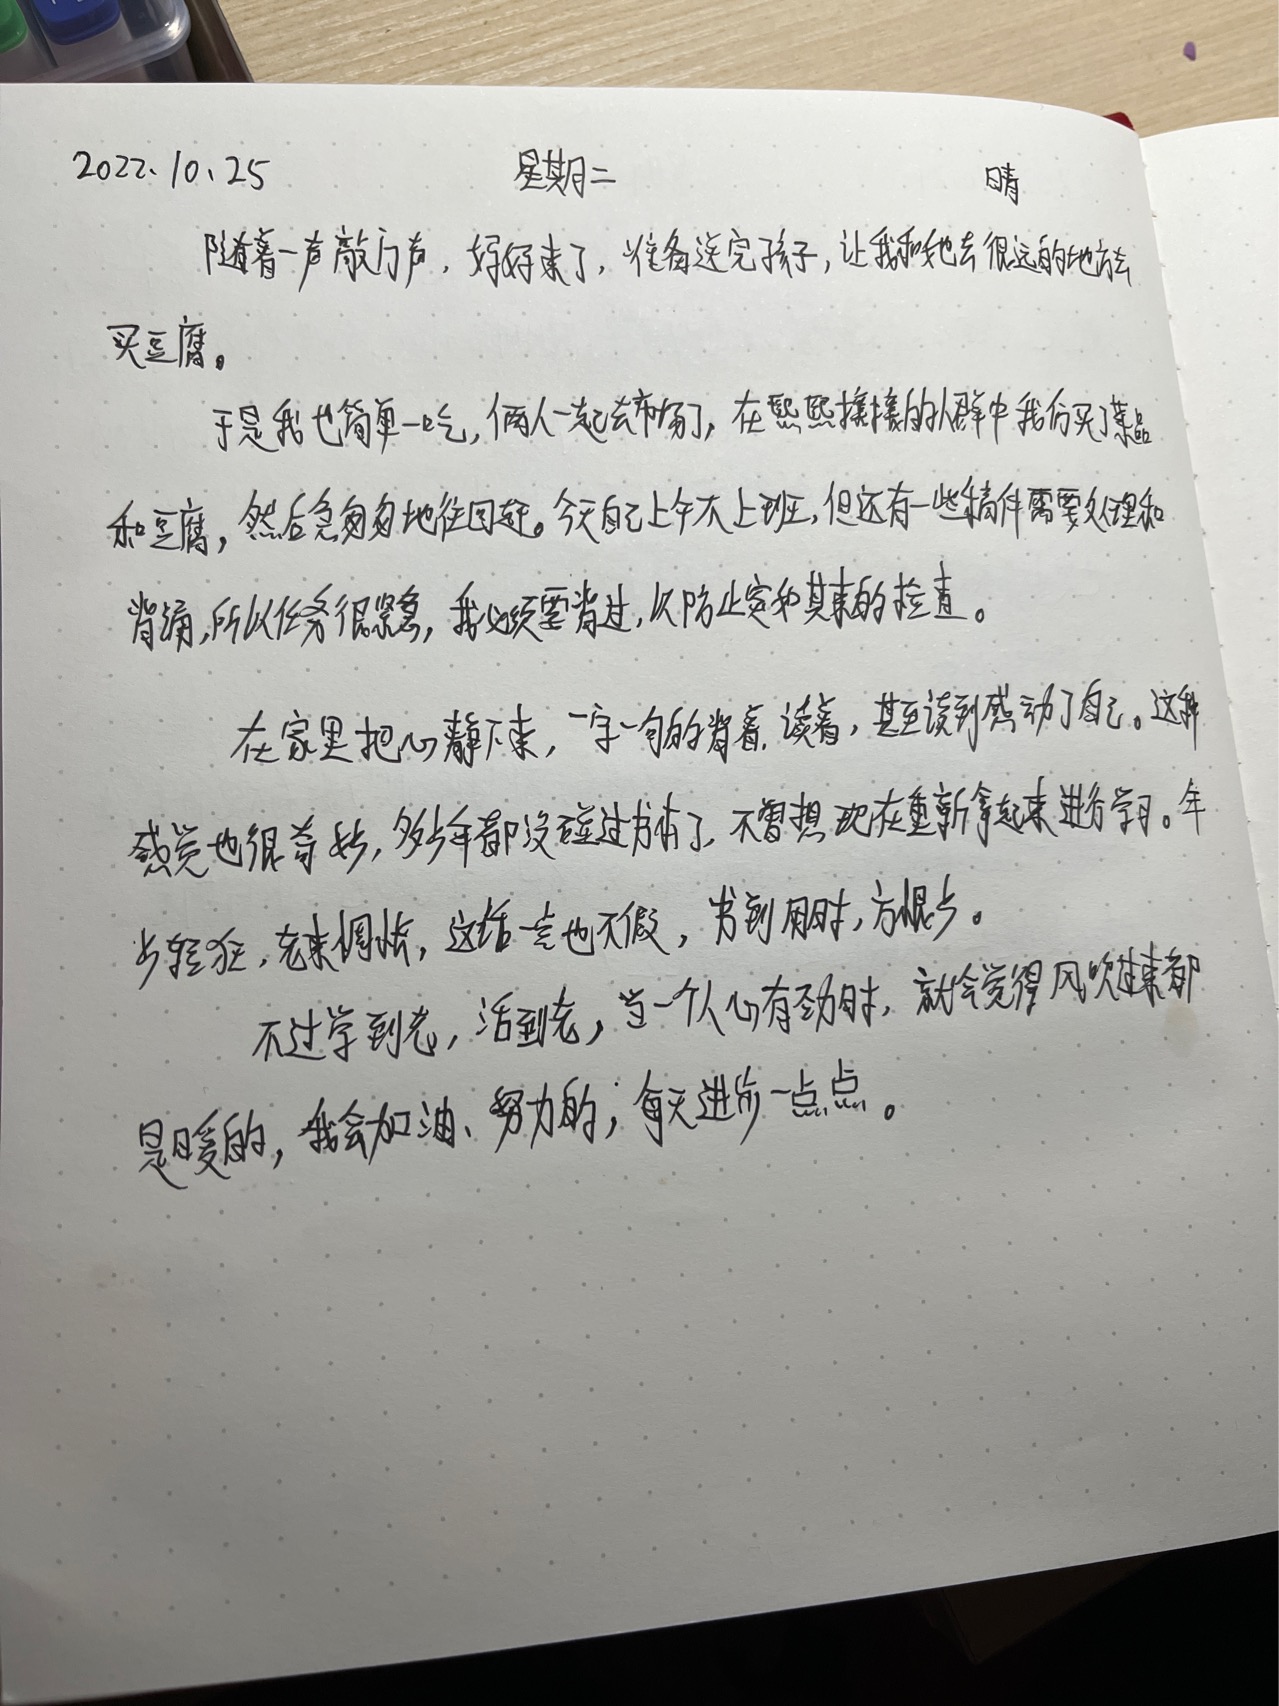 2022.10.25 星期二 晴
随着一声敲门声,好好来了,准备送完孩子,让我和她去很远的地方去
买豆腐。
于是我也简单一吃,俩人一起去市场了,在熙熙攘攘的人群中我们买了菜品
和豆腐,然后急匆匆地往回赶。今天自己上午不上班,但还有一些稿件需要处理和
背诵,所以任务很紧急,我必须要背过,以防止突如其来的检查。
在家里把心静下来,一字一句的背着、读着,甚至读到感动了自己。这种
感觉也很奇妙,多少年都没碰过书本了,不曾想现在重新拿起来进行学习。年
少轻狂,老来惆怅,这话一点也不假,书到用时,方恨少。
不过学到老,活到老,当一个人心有劲时,就会觉得风吹过来都
是暖的,我会加油、努力的;每天进步一点点。